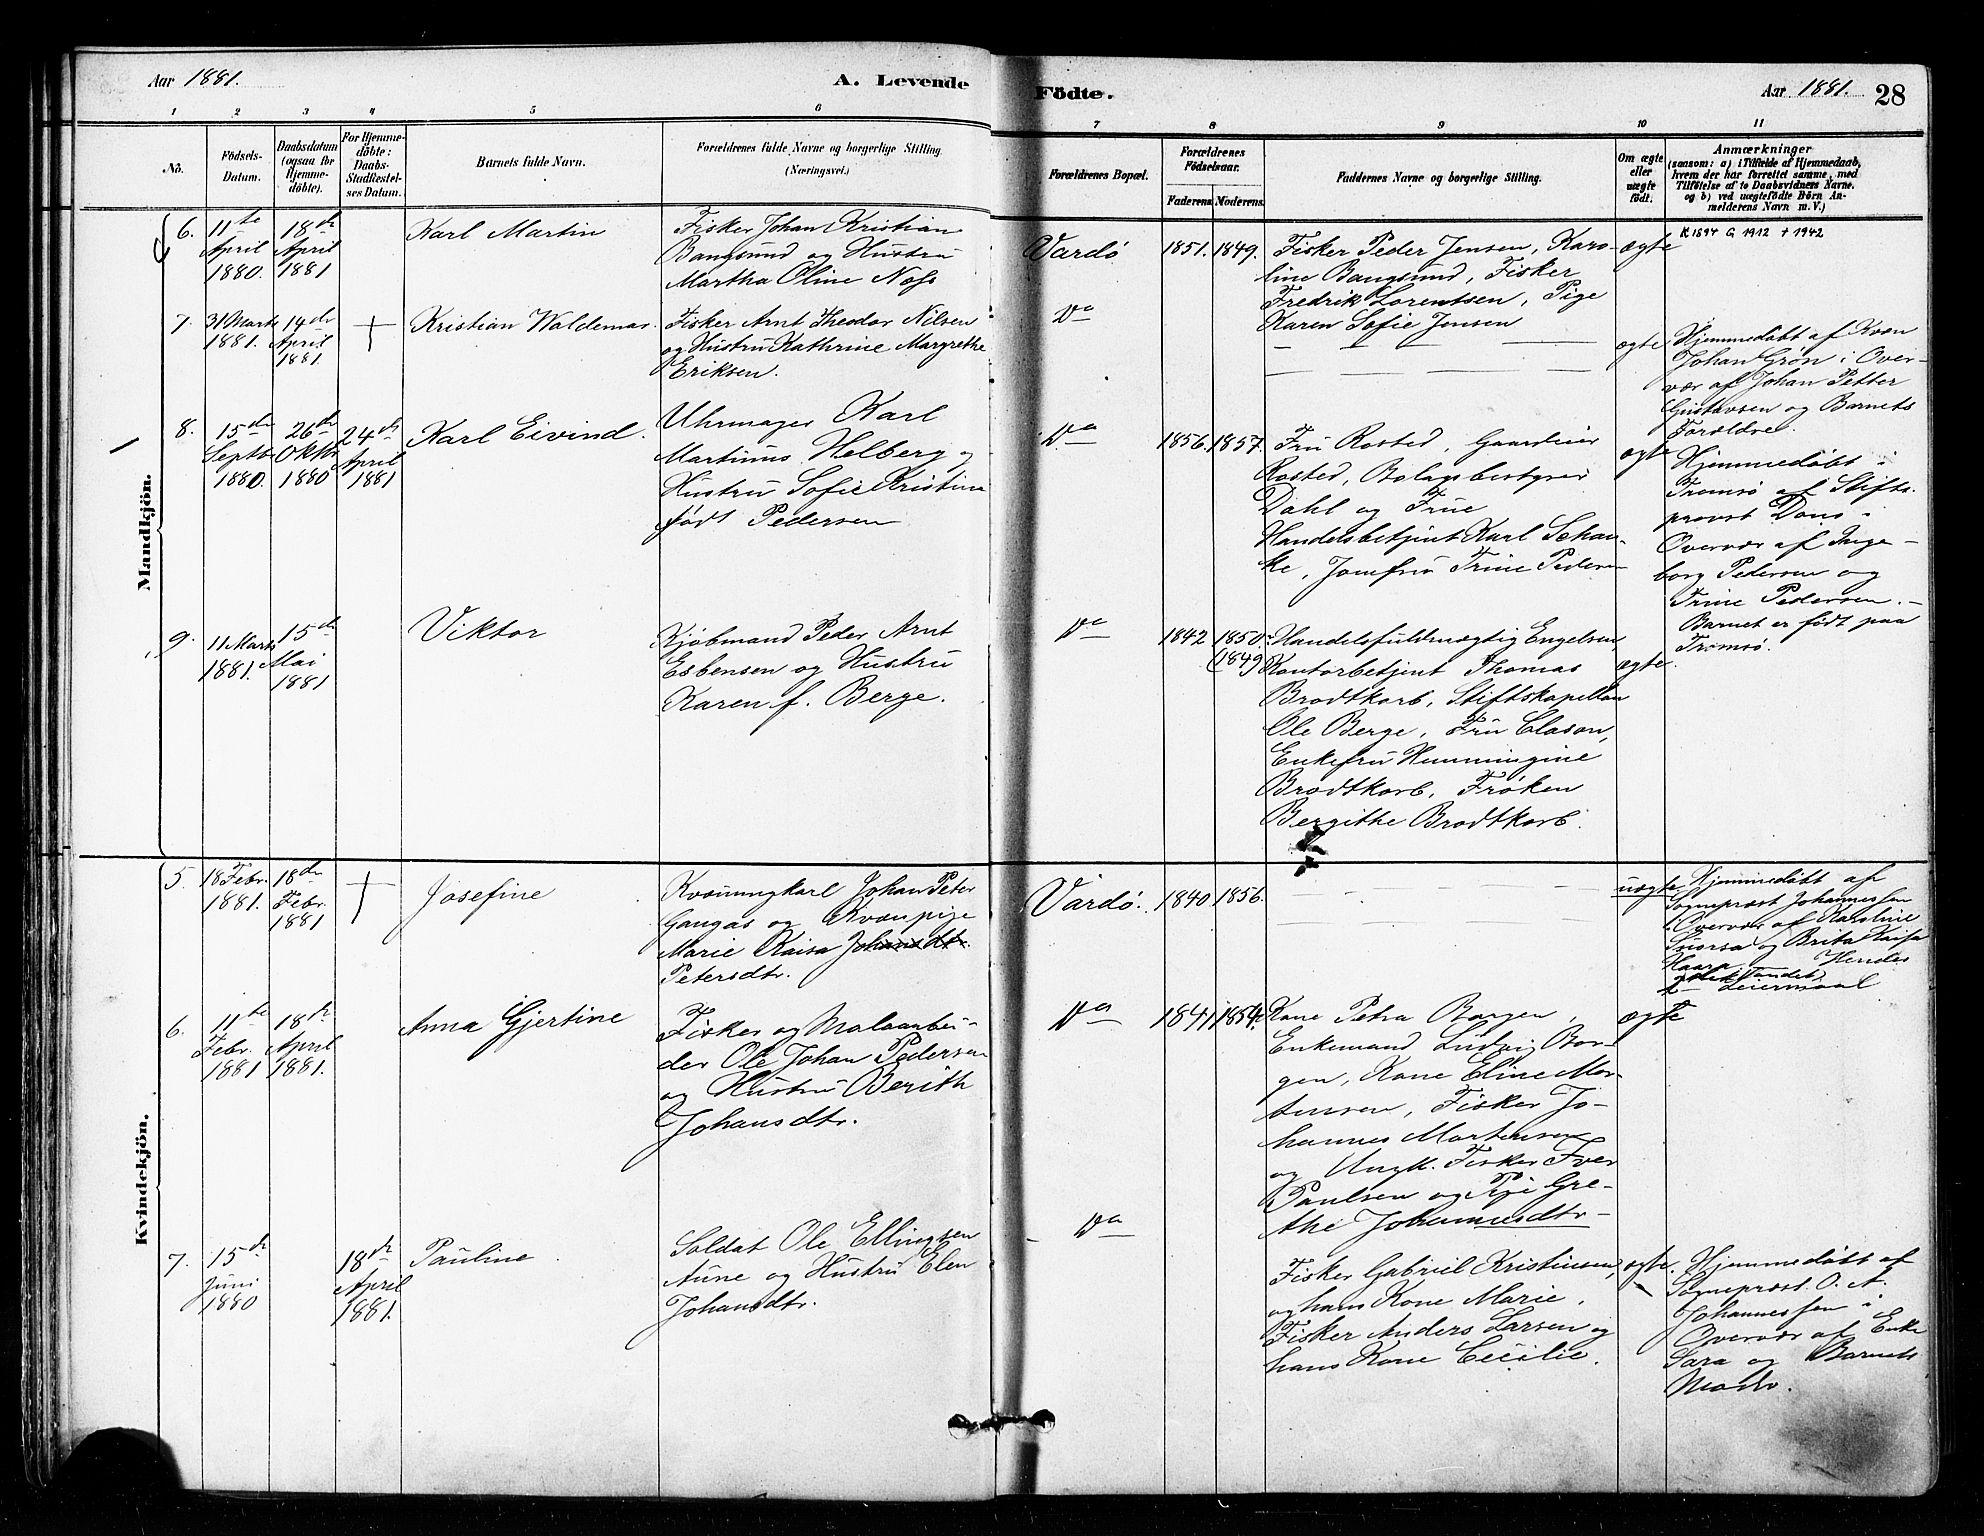 Aar 1881.
A. Levende
Födte.
Aar 1881.
28
1 2 3 4 5 6 7 8 9 10 11
No.
Födsels-
Datum.
Daabsdatum
(ogsaa for
Hjemme-
döbte).
For Hjemme-
döbte:
Daabs-
Stadfæstel-
ses Datum.
Barnets fulde Navn.
Forældrenes fulde Navne og borgerlige Stilling.
(Næringsvei.)
Forældrenes Bopæl.
Forældrenes
Födselsaar.
Faderens.
Moderens.
Faddernes Navne og borgerlige Stilling.
Om ægte
eller
uægte
födt.
Anmærkninger
(saasom: a) i Tilfælde af Hjemmedaab,
hvem der har forrettet samme, med
Tilföielse af to Daabsvidners Navne,
og b) ved uægtefödte Börn An-
melderens Navn m. V.)
Mandkjön.
6.
11te
April
1880.
18de
April
1881
Karl Martin
Fisker Johan Kristian
Bangsund og Hustru
Martha Oline Noss
Vardø
1851.
1849.
Fisker Peder Jensen, Karo-
line Bangsund, Fisker
Fredrik Lorentsen, Pige
Karen Sofie Jensen
ægte
K 1894 G 1912 + 1942
7.
31 Marts
1881.
14de
April
1881
+
Kristian Waldemar.
Fisker Arnt Theodor Nilsen
og Hustru Kathrine Margrethe
Eriksen.
Do
ægte.
Hjemmedøbt af Kvæn
Johan Grøn i Over-
vær af Johan Petter
Gustavsen og Barnets
Forældre.
8.
15de
Septb
1880.
26de
Oktbr
1880
24de
April
1881
Karl Eivind.
Uhrmager Karl
Martinus Helberg og
Hustru Sofie Kristine
født Pedersen
Do
1856.
1857.
Fru Rosted, Gaardeier
Rosted, Bolagsbestyrer
Dahl og Frue
Handelsbetjent Karl Schan-
ke, Jomfru Trine Peder-
ægte
Hjemmedøbt i
Tromsø af Stifts-
provst Dons i
Overvær af Inge-
borg Pedersen og
Trine Pedersen. -
Barnet er født paa
Tromsø.
9.
11 Marts
1881.
15de
Mai
1881
Viktor
Kjøbmand Peder Arnt
Esbensen og Hustru
Karen f. Berge.
Do
1842
1850.
(1849)
Handelsfuldmægtig Engelsen,
Kontorbetjent Thomas
Brodtkorb, Stiftskapellan
Ole Berge, Fru Clason,
Enkefru Hemmingine
Brodtkorb, Frøken
Bergithe Brodtkorb.
ægte.
Kvindekjön.
5.
18 Febr.
1881.
18de
Febr.
1881
+
Josefine
Kvænungkarl Johan Peter
Gangas og Kvænpige
Marie Kaisa Johansdtr.
Petersdtr.
Vardø.
1840
1856.
uægte
Hjemmedøbt af
Sogneprest Johannessen
i Overvær af Karoline
og Brita Kaisa
Haara. Hendes
Leiermaal
6.
11te
Febr.
1881
18de
April
1881.
Anna Gjertine
Fisker og Malaarbei-
der Ole Johan Pedersen
og Hustru Berith
Johansdtr.
Do
1841
1854.
Kone Petra Borgen,
Enkemand Ludvig Bor-
gen, Kone Eline Mor-
tensen, Fisker Jo-
hannes Mortensen
og Ungk. Fisker Iver
Paulsen og Pige Gre-
the Johannesdtr-
ægte
7.
15de
Juni
1880
18de
April
1881.
Pauline
Soldat Ole Ellingsen
Aune og Hustru Elen
Johansdtr.
Do
Fisker Gabriel Kristiansen,
og hans Kone Marie,
Fisker Anders Larsen og
hans Kone Cecilie.
ægte.
Hjemmedøbt af
Sogneprest O. A.
Johannessen i
Overvær af Enke
Sara og Barnets
Moder.